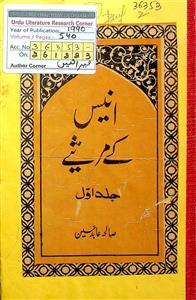 36353
2
Urdu Literature Research Corner
Year of Publication: 1990
Volume / Pages: 540
Acc. No 3 6 3 5 3
On: 2 6 1 2 2 3
Author Corner
انیس
کے مرثیے
جلد اوّل
صالحہ عابد حسین